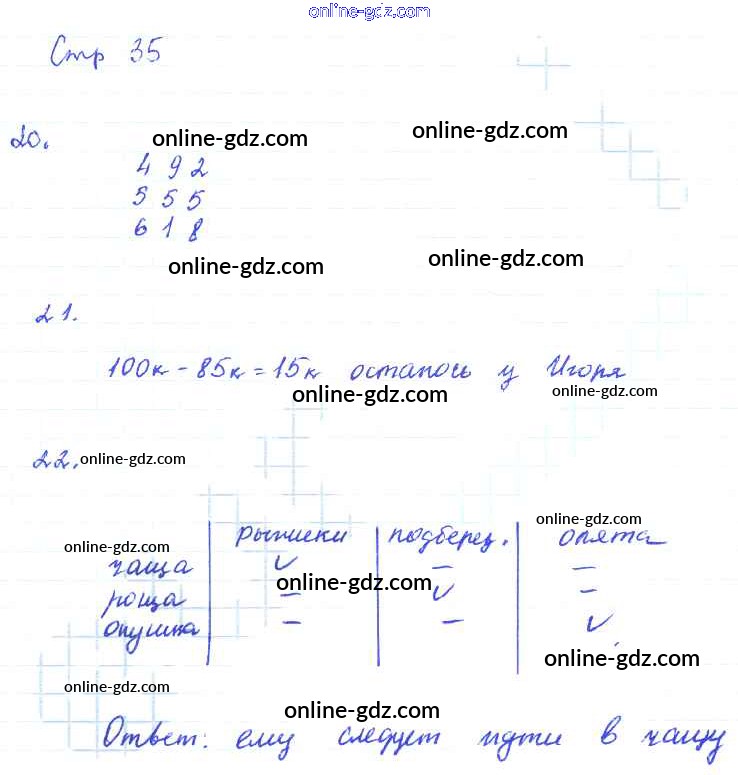 online-gdz.com
Стр 35
20.
online-gdz.com online-gdz.com
4 9 2
5 5 5
6 1 8
online-gdz.com online-gdz.com
21.
100к - 85к = 15к осталось у Игоря
online-gdz.com online-gdz.com
22. online-gdz.com
online-gdz.com
рыжики подберез. опята
online-gdz.com
чаща ✓ — —
online-gdz.com
роща — ✓ —
опушка — — ✓
online-gdz.com
online-gdz.com
online-gdz.com
Ответ: ему следует идти в чащу